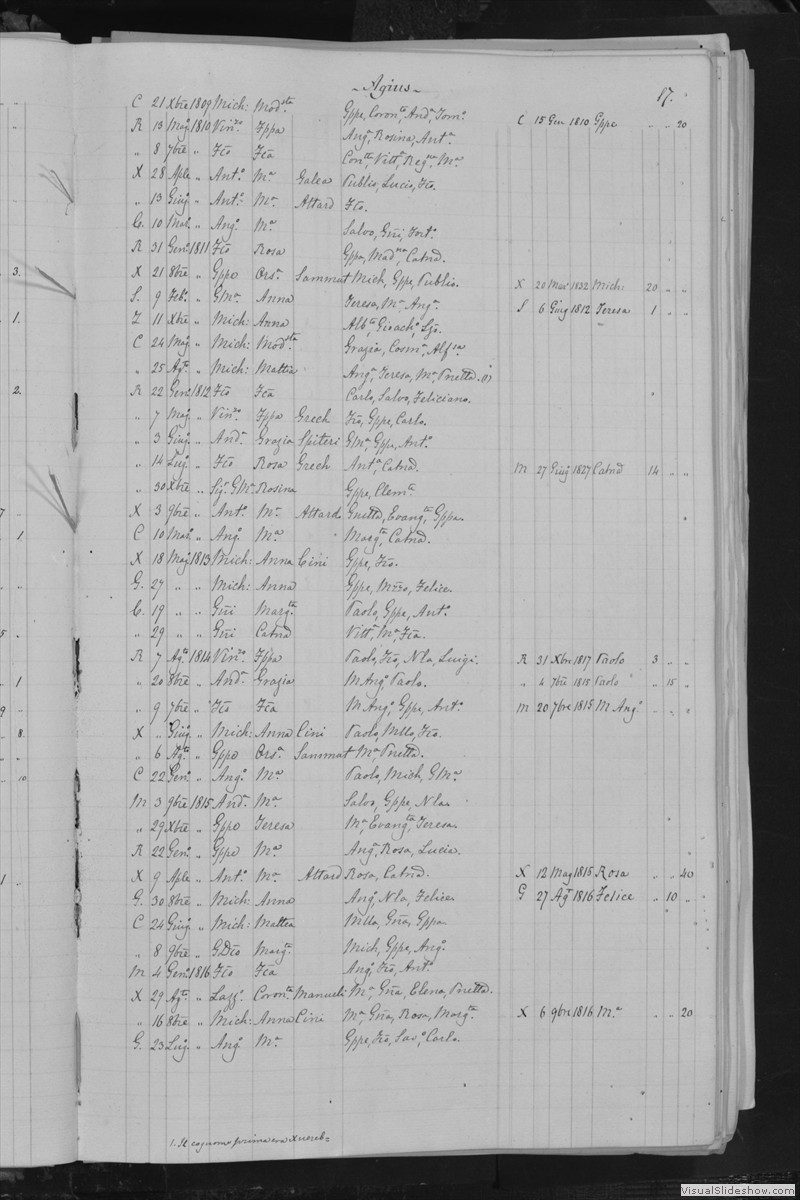 Agius 17.
C 21 Xbre 1809 Mich: Mod.sta Gppe, Coron.ta, And.a, Tom.o C 15 Gen 1810 Gppe " " 20
R 13 Mag 1810 Vin.zo Fppa Ang.a, Rosina, Ant.a
" 8 7bre " Fco Fca Con.tta, Vitt.a, Reg.na, M.a
X 28 Aple " Ant.o M.a Galea Publio, Lucio, Fco.
" 13 Giug " Ant.o M.a Attard Fco.
G. 10 Mar. " Ang.o M.a Salvo, Gni, Fort.o
R 31 Gen. 1811 Fco Rosa Gppa, Mad.na, Catnd.
X 21 8bre " Gppo Ors.a Sammut Mich, Gppe, Publio. X 20 Mar 1832 Mich: 20 " "
S. 9 Feb. " GMa. Anna Teresa, M.a, Ang.a S 6 Giug 1812 Teresa 1 " "
Z 11 Xbre " Mich: Anna Alb.to, Gioach.o, Lgo.
C 24 Mag " Mich: Mod.sta Grazia, Cosm.a, Alf.sa
" 25 Ag.to " Mich: Mattia Ang.a, Teresa, M.a, Pnetta.
R 22 Gen. 1812 Fco Fca Carlo, Salvo, Feliciano.
" 7 Mag " Vin.zo Fppa Grech Fco, Gppe, Carlo.
" 3 Giug " And.a Grazia Spiteri GMa, Gppe, Ant.o
" 14 Lug " Fco Rosa Grech Ant.a, Catnd. M 27 Giug 1827 Catnd 14 " "
" 30 Xbre " Sig. GMa. Rosina Gppe, Clem.te
X 3 9bre " Ant.o M.a Attard Gnetta, Evang.ta, Gppa.
C 10 Mar. " Ang. M.a Marg.ta, Catnd.
X 18 Mag 1813 Mich: Anna Cini Gppe, Fco.
G. 27 " " Mich: Anna Gppe, Mzzo, Felice.
G. 19 " " Gni Marg.ta Paolo, Gppe, Ant.o
" 29 " " Gni Catnd Vitt.a, M.a, Fca.
R 7 Ag.to 1814 Vin.zo Fppa Paolo, Fco, Nla, Luigi. R 31 Xbre 1817 Paolo 3 " "
" 20 8bre " And.a Grazia M Ang.o, Paolo. " 4 7bre 1815 Paolo " 15 "
" 9 7bre " Fco Fca M Ang.o, Gppe, Ant.o M 20 7bre 1815 M Ang.o " " "
X " Giug " Mich: Anna Cini Paolo, Mllo, Fco.
" 6 Ag.to " Gppo Ors.a Sammut M.a, Pnetta.
C 22 Gen. " Ang.o M.a Paolo, Mich, GMa
M 3 9bre 1815 And.a M.a Salvo, Gppe, Nla.
" 29 Xbre " Gppo Teresa M.a, Evang.ta, Teresa.
R 22 Gen. " Gppo M.a Ang.a, Rosa, Lucia.
X 9 Aple " Ant.o M.a Attard Rosa, Catnd. X 12 Mag 1815 Rosa " " 40
G. 30 8bre " Mich: Anna Ang.o, Nla, Felice. G 27 Ag.to 1816 Felice " 10 "
C 24 Giug " Mich: Mattea Mlla, Gna, Gppa.
" 8 9bre " GDco Marg.ta Mich, Gppe, Ang.o
M 4 Gen. 1816 Fco Fca Ang.o, Fco, Ant.o
X 29 Ag.to " Lazz.o Coron.ta Manueli M.a, Gna, Elena, Pnetta.
" 16 8bre " Mich: Anna Cini M.a, Gna, Rosa, Marg.ta X 6 9bre 1816 M.a " " 20
G. 23 Lug. " Ang.o M.a Gppe, Fco, Sav.o, Carlo.
1. Il cognome prima era Xuereb
VisualSlideshow.com